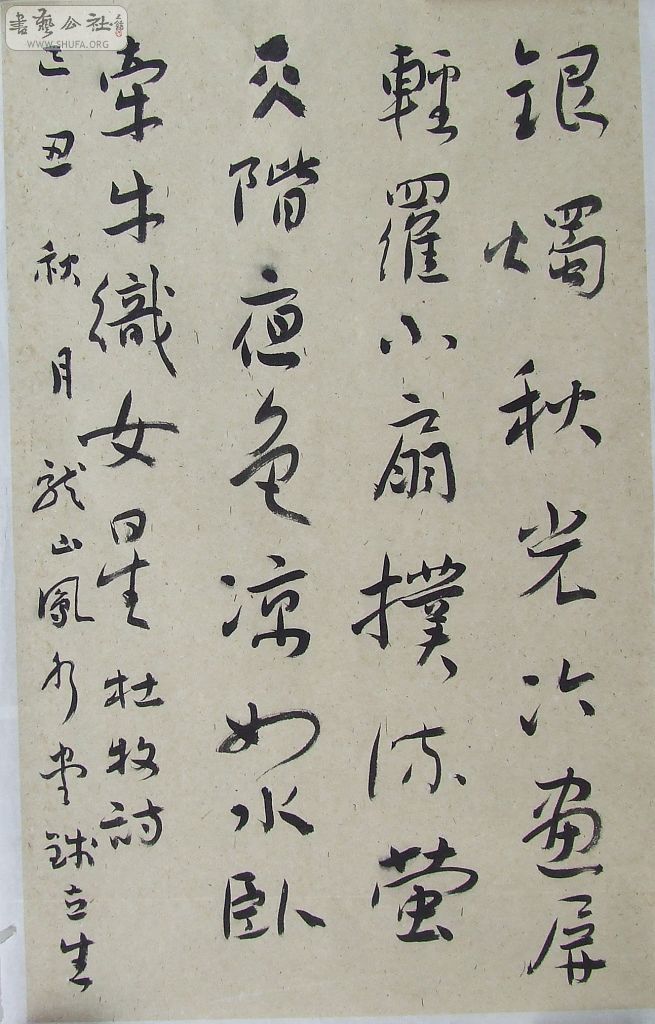 書藝公社
WWW.SHUFA.ORG
銀燭秋光冷畫屏
輕羅小扇撲流螢
天階夜色凉如水臥
牽牛織女星杜牧詩
己丑秋月龍山鳳堂立生